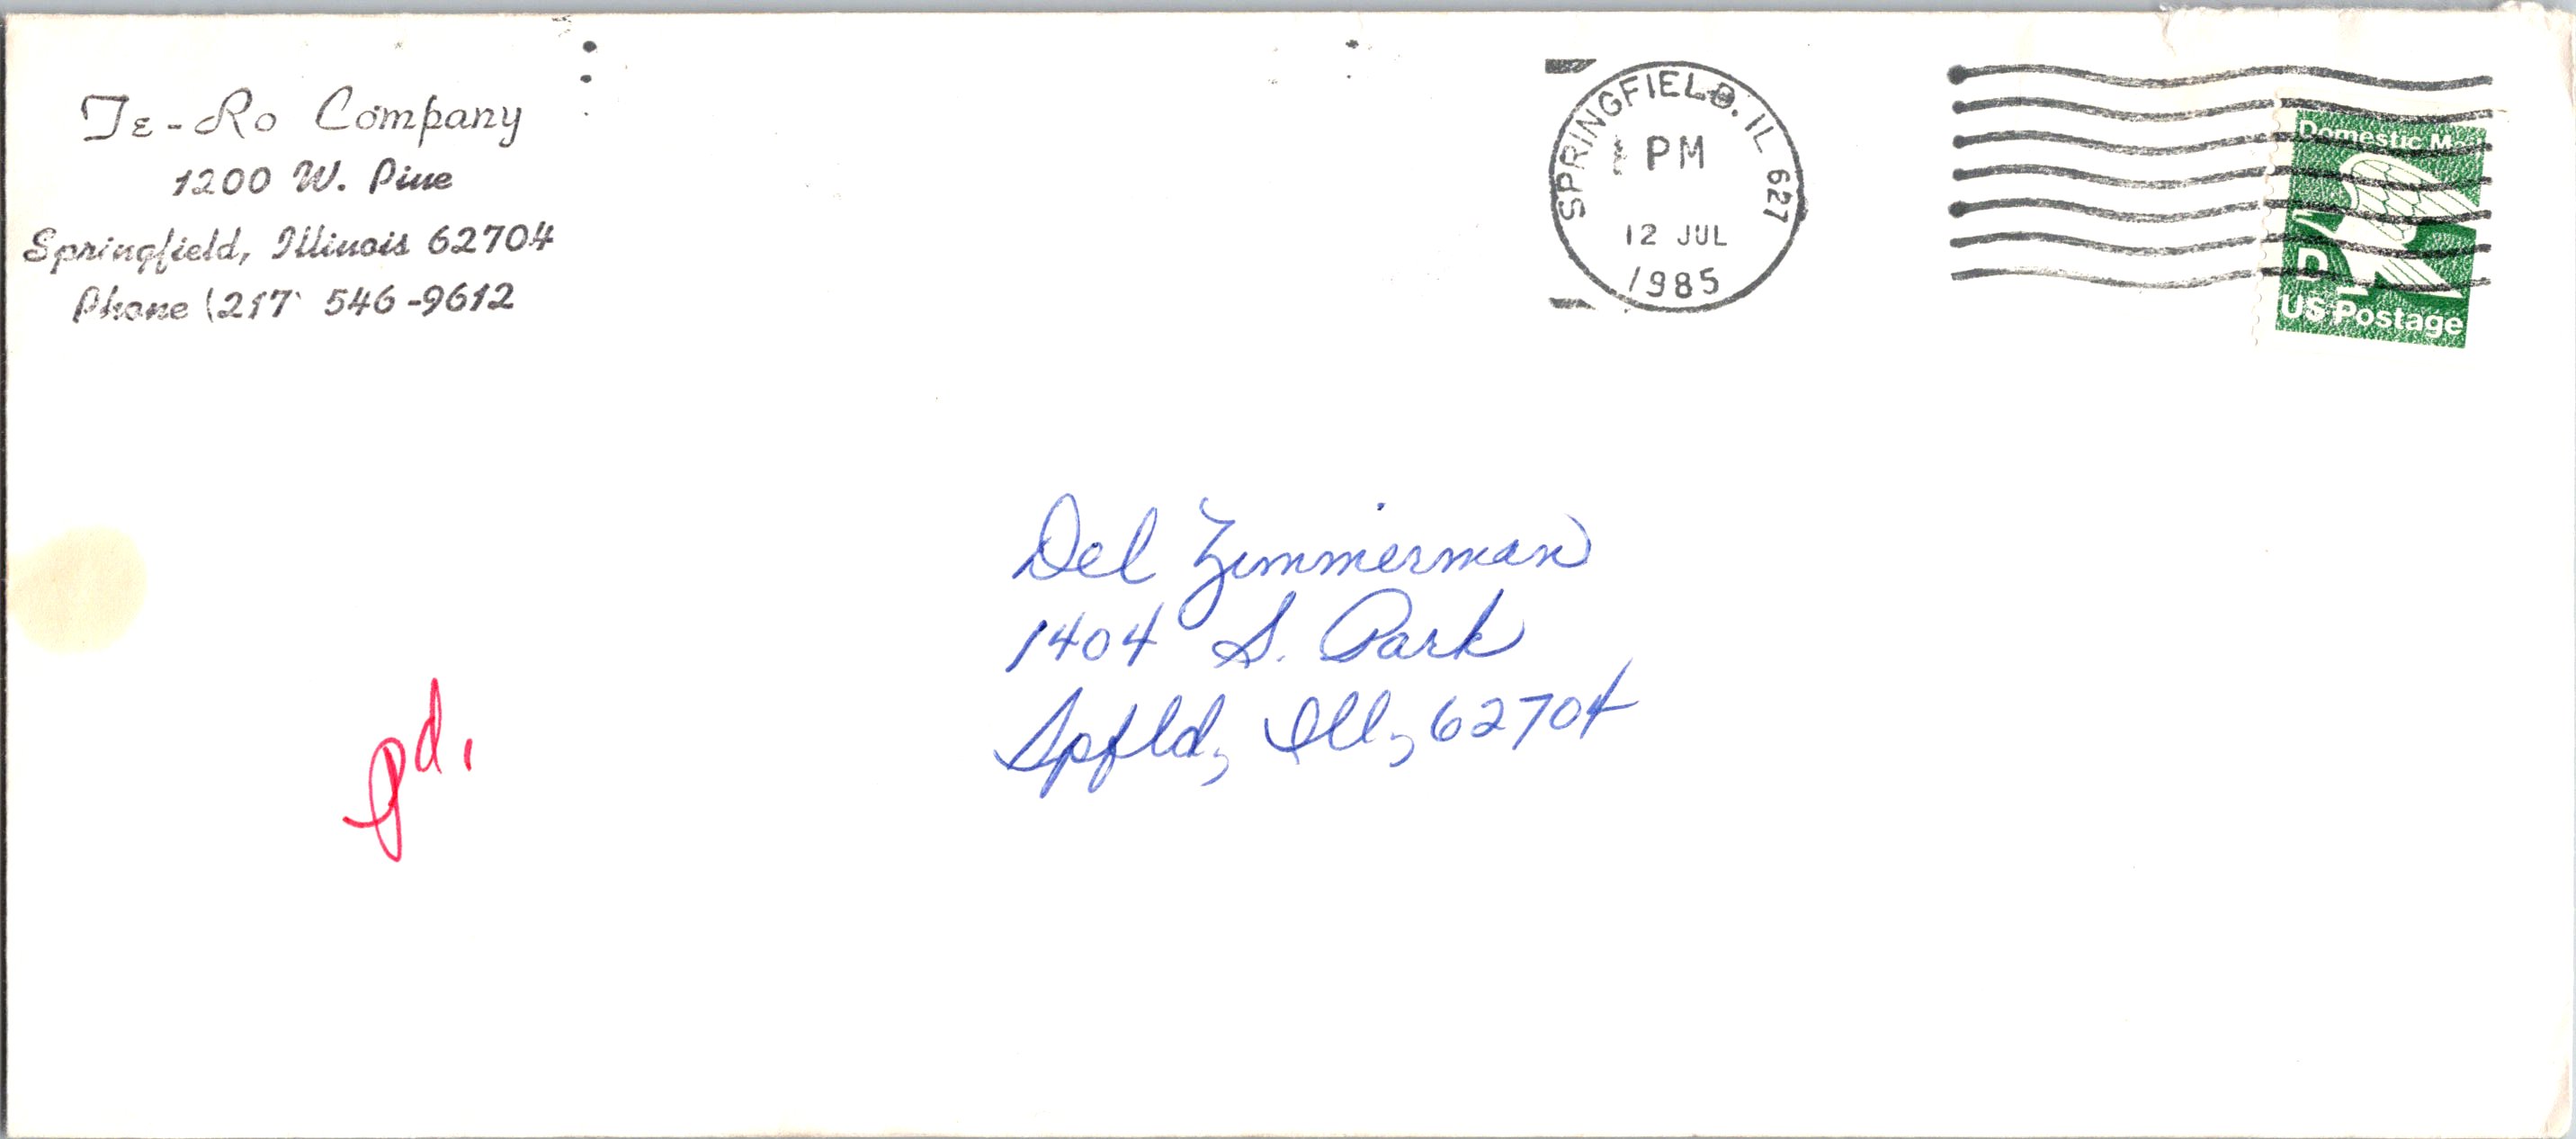 Te-Ro Company
1200 W. Pine
Springfield, Illinois 62704
Phone (217 546-9612
SPRINGFIELD, IL 627
PM
12 JUL
1985
Domestic Mail
D
US Postage
Del Zimmerman
1404 S. Park
Spfld, Ill, 62704
pd.